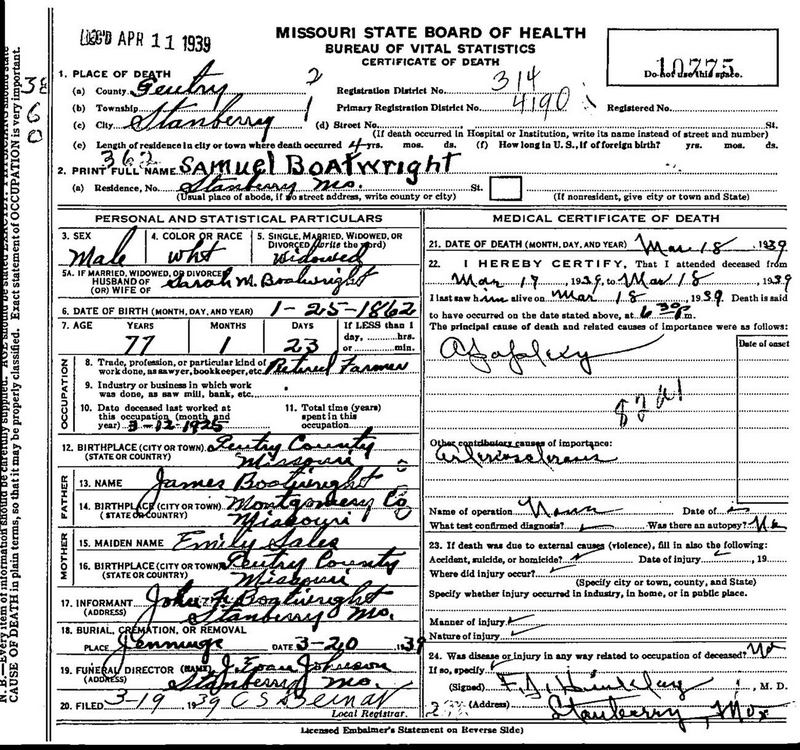 REC'D APR 11 1939
MISSOURI STATE BOARD OF HEALTH
BUREAU OF VITAL STATISTICS
CERTIFICATE OF DEATH
10775
Do not use this space.
1. PLACE OF DEATH
(a) County Gentry 2 Registration District No. 314
(b) Township 1 Primary Registration District No. 4190 Registered No.
(c) City Stanberry (d) Street No. St.
(If death occurred in Hospital or Institution, write its name instead of street and number)
(e) Length of residence in city or town where death occurred 4 yrs. mos. ds. (f) How long in U. S., if of foreign birth? yrs. mos. ds.
362
2. PRINT FULL NAME Samuel Boatwright
(a) Residence, No. Stanberry Mo. St.
(Usual place of abode, if no street address, write county or city) (If nonresident, give city or town and State)
PERSONAL AND STATISTICAL PARTICULARS
3. SEX 4. COLOR OR RACE 5. SINGLE, MARRIED, WIDOWED, OR
DIVORCED (write the word)
Male Wht Widowed
5A. IF MARRIED, WIDOWED, OR DIVORCED
HUSBAND OF Sarah M. Boatwright
(OR) WIFE OF
6. DATE OF BIRTH (MONTH, DAY, AND YEAR) 1-25-1862
7. AGE YEARS MONTHS DAYS If LESS than 1
day, hrs.
77 1 23 or min.
OCCUPATION
8. Trade, profession, or particular kind of
work done, as sawyer, bookkeeper, etc. Retired Farmer
9. Industry or business in which work
was done, as saw mill, bank, etc.
10. Date deceased last worked at
this occupation (month and
year) 3-12-1925
11. Total time (years)
spent in this
occupation
12. BIRTHPLACE (CITY OR TOWN) Gentry County
(STATE OR COUNTRY) Missouri
FATHER
13. NAME James Boatwright
14. BIRTHPLACE (CITY OR TOWN) Montgomery Co
(STATE OR COUNTRY) Missouri
MOTHER
15. MAIDEN NAME Emily Sales
16. BIRTHPLACE (CITY OR TOWN) Gentry County
(STATE OR COUNTRY) Missouri
17. INFORMANT John Boatwright
(ADDRESS) Stanberry Mo.
18. BURIAL, CREMATION, OR REMOVAL
PLACE Jennings DATE 3-20 1939
19. FUNERAL DIRECTOR (NAME) Johnson
(ADDRESS) Stanberry Mo.
20. FILED 3-19 1939
Local Registrar.
MEDICAL CERTIFICATE OF DEATH
21. DATE OF DEATH (MONTH, DAY, AND YEAR) Mar 18 1939
22. I HEREBY CERTIFY, That I attended deceased from
Mar 17, 1939, to Mar 18, 1939
I last saw him alive on Mar 18, 1939. Death is said
to have occurred on the date stated above, at 6 30 P.m.
The principal cause of death and related causes of importance were as follows:
Date of onset
Apoplexy
82a1
Other contributory causes of importance:
Arteriosclerosis
Name of operation None Date of
What test confirmed diagnosis? Was there an autopsy? No
23. If death was due to external causes (violence), fill in also the following:
Accident, suicide, or homicide? Date of injury , 19
Where did injury occur?
(Specify city or town, county, and State)
Specify whether injury occurred in industry, in home, or in public place.
Manner of injury
Nature of injury
24. Was disease or injury in any way related to occupation of deceased? No
If so, specify
(Signed) Hinkley, M. D.
(Address) Stanberry, Mo
Licensed Embalmer's Statement on Reverse Side)
CAUSE OF DEATH in plain terms, so that it may be properly classified. Exact statement of OCCUPATION is very important.